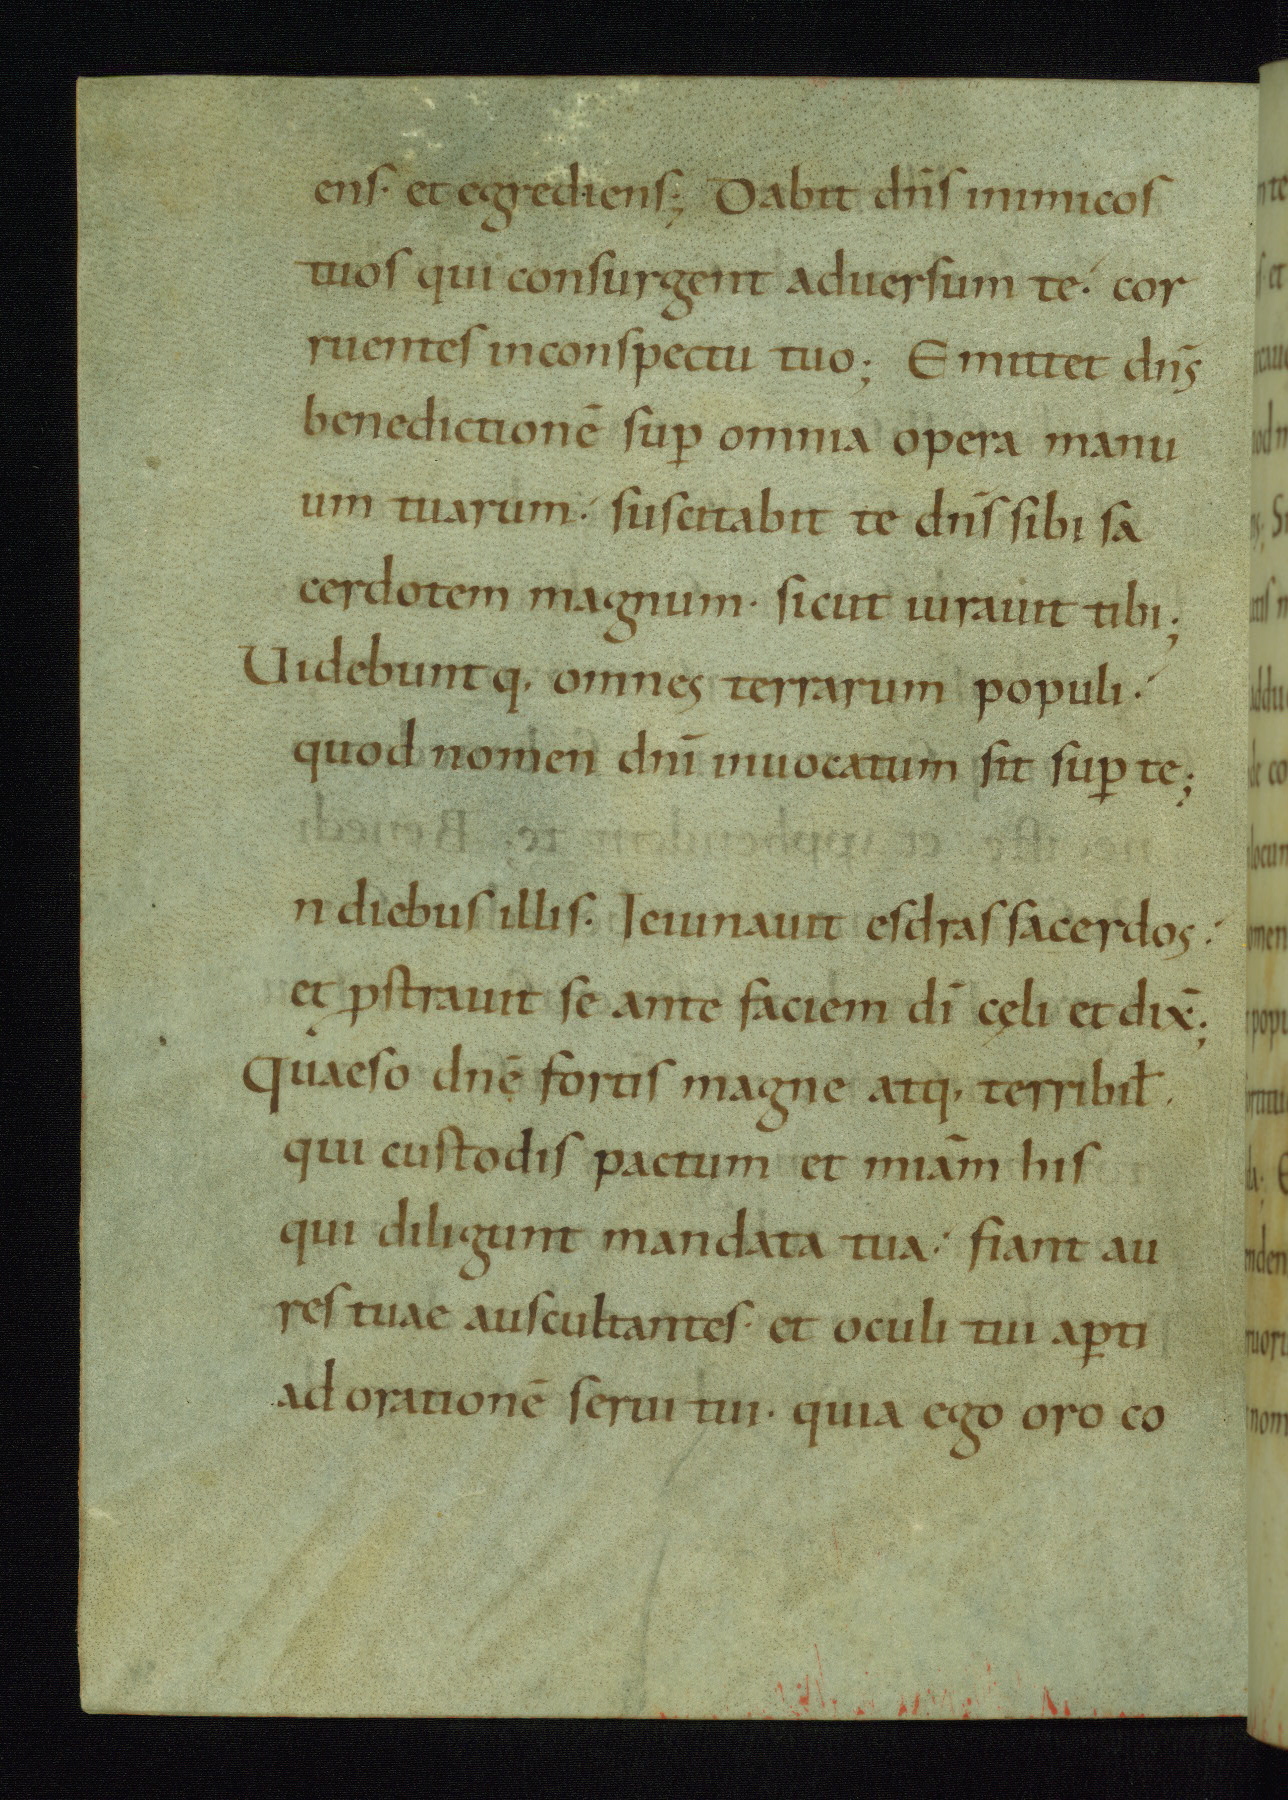 ens· et egrediens; Dabit dn̄s inimicos
tuos qui consurgent aduersum te· cor
ruentes inconspectu tuo; Emittet dn̄s
benedictionē sup̄ omnia opera manu
um tuarum· suscitabit te dn̄s sibi sa
cerdotem magnum· sicut iurauit tibi;
Uidebuntq· omnes terrarum populi·
quod nomen dnī inuocatum sit sup̄ te;
n diebus illis· Ieiunauit esdras sacerdos·
et ꝓstrauit se ante faciem dī cęli et dix̄;
Quaeso dnē fortis magne atq· terribil̄·
qui custodis pactum et miām his
qui diligunt mandata tua· fiant au
res tuae auscultantes· et oculi tui aꝑti
ad orationē serui tui· quia ego oro co